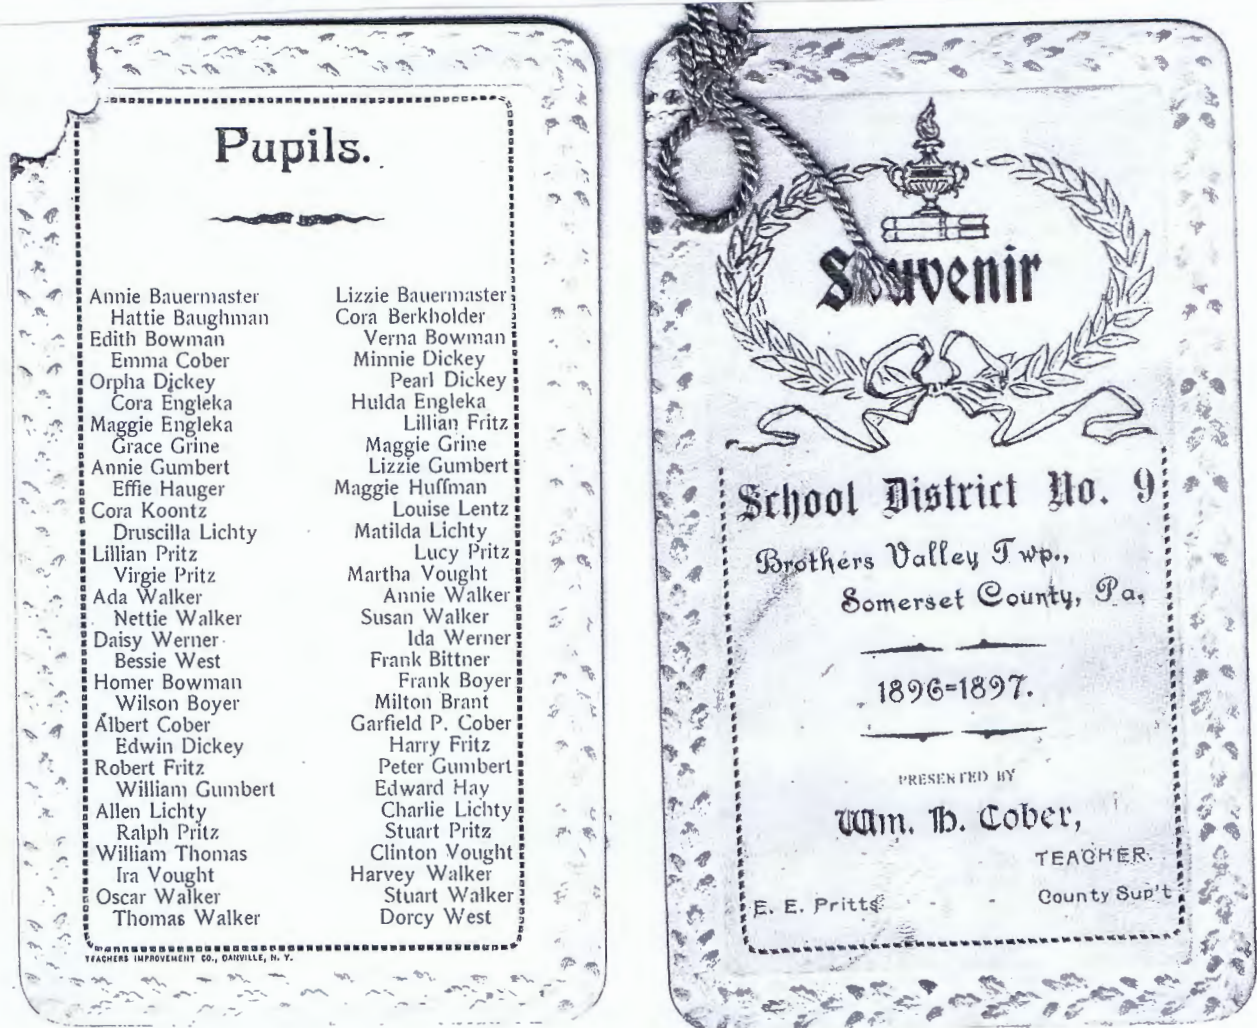 Pupils.
Annie Bauermaster
Hattie Baughman
Edith Bowman
Emma Cober
Orpha Dickey
Cora Engleka
Maggie Engleka
Grace Grine
Annie Gumbert
Effie Hauger
Cora Koontz
Druscilla Lichty
Lillian Pritz
Virgie Pritz
Ada Walker
Nettie Walker
Daisy Werner
Bessie West
Homer Bowman
Wilson Boyer
Albert Cober
Edwin Dickey
Robert Fritz
William Gumbert
Allen Lichty
Ralph Pritz
William Thomas
Ira Vought
Oscar Walker
Thomas Walker
Lizzie Bauermaster
Cora Berkholder
Verna Bowman
Minnie Dickey
Pearl Dickey
Hulda Engleka
Lillian Fritz
Maggie Grine
Lizzie Gumbert
Maggie Huffman
Louise Lentz
Matilda Lichty
Lucy Pritz
Martha Vought
Annie Walker
Susan Walker
Ida Werner
Frank Bittner
Frank Boyer
Milton Brant
Garfield P. Cober
Harry Fritz
Peter Gumbert
Edward Hay
Charlie Lichty
Stuart Pritz
Clinton Vought
Harvey Walker
Stuart Walker
Dorcy West
TEACHERS IMPROVEMENT CO., DANVILLE, N. Y.
Souvenir
School District No. 9
Brothers Valley Twp.,
Somerset County, Pa.
1896=1897.
PRESENTED BY
Wm. H. Cober,
TEACHER.
E. E. Pritts County Sup't